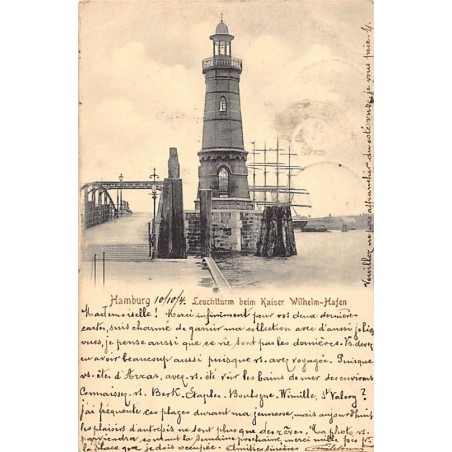 Hamburg 10/10/4. Leuchtturm beim Kaiser Wilhelm-Hafen
Mademoiselle! Merci infiniment pour vos deux dernières
cartes, suis charmé de garnir ma collection avec d'aussi jolies
vues, je pense aussi que ce ne sont pas les dernières. Vs. devez
en avoir beaucoup aussi puisque vs. avez voyagée. Puisque
vs. êtes d'Arras, avez-vs. été voir les bains de mer des environs
Connaissez-vs. Berk. Étaples. Boulogne. Wimille, St Valery?
j'ai fréquenté ces plages durant ma jeunesse, mais aujourd'hui
les plaisirs d'autrefois ne sont plus que des rêves. Ma photo vs.
parviendra courant la semaine prochaine, merci mille fois pr.
la place que je dois occuper. Amitiés sincères
Veuillez ne pas affranchir du côté vue, je vous prie.